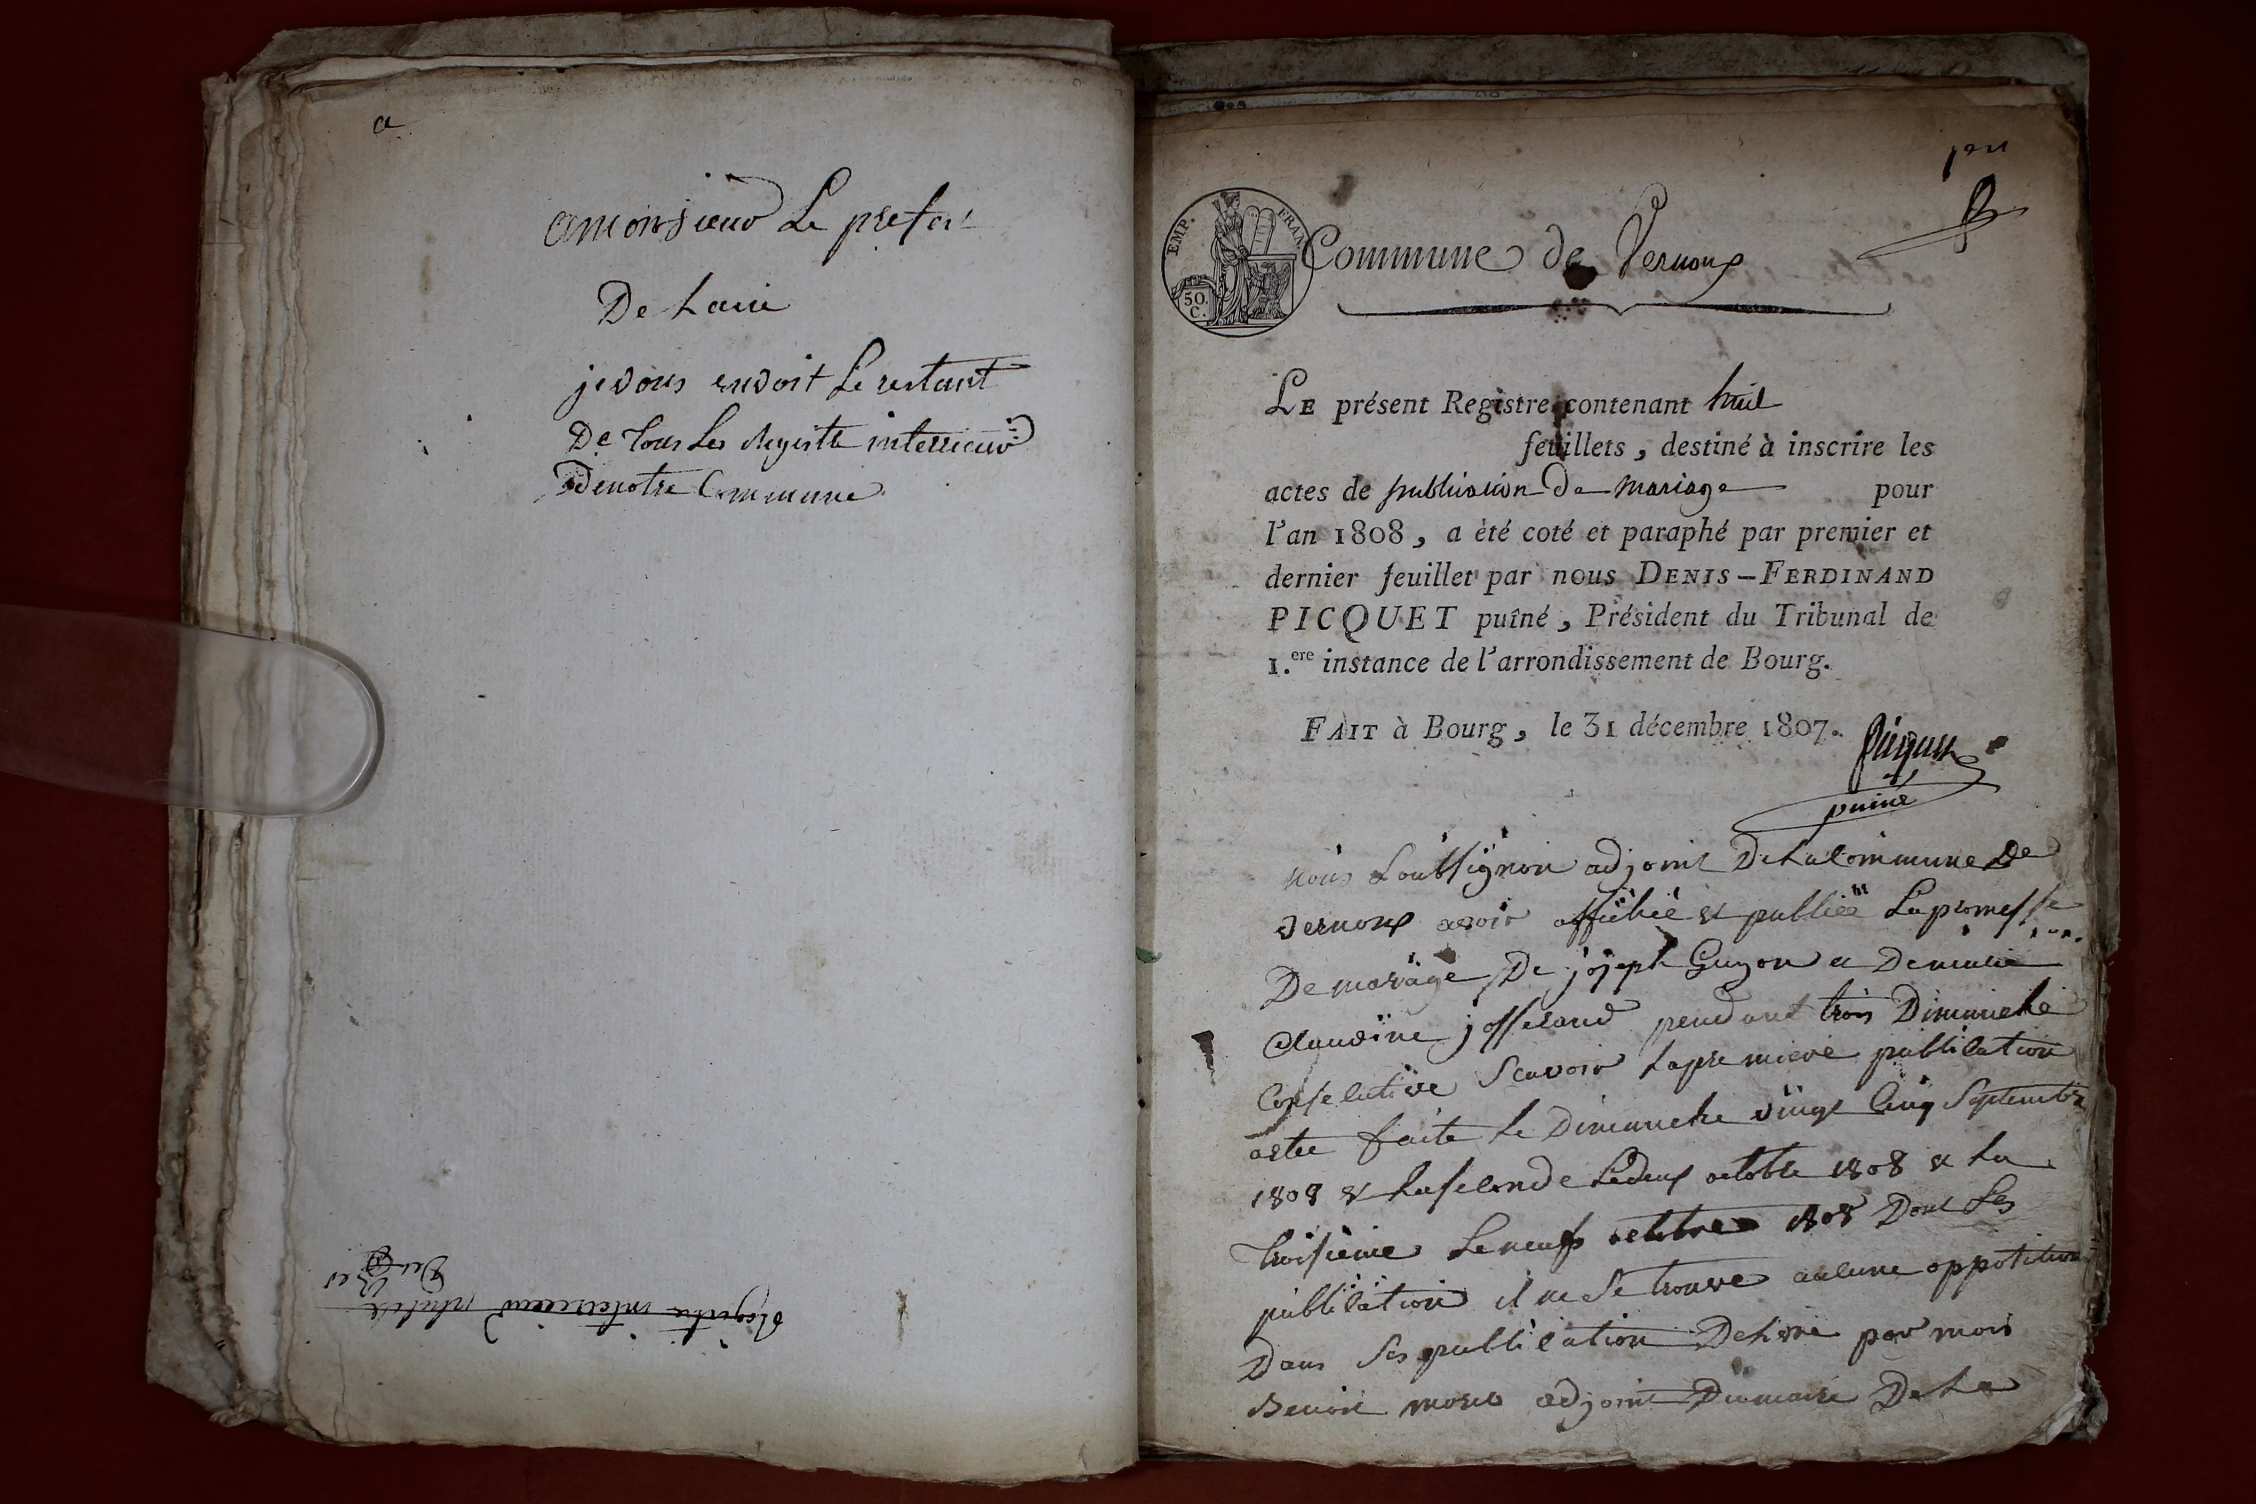 a
amonsieur Le prefai
De Lain
je vous envoit Le restant
De tous Les Registre interrieur
Denotre Commune
Registre interrieur
1er
EMP. FRAN.
50.
C.
Commune de Vernoux
LE présent Registre contenant huit
feuillets, destiné à inscrire les
actes de publication De mariage pour
l'an 1808, a été coté et paraphé par premier et
dernier feuillet par nous DENIS-FERDINAND
PICQUET puîné, Président du Tribunal de
1.ere instance de l'arrondissement de Bourg.
FAIT à Bourg, le 31 décembre 1807.
Picquet
puiné
nous Soussignon adjoint De La Commune De
vernoux avoir affichée et publiée La promesse
De mariage De joseph Guyon et De marie
Claudine josserand pendant trois Dimanche
Consecutive Scavoir La premiere publication
a etee faite Le Dimanche vingt Cinq Septembre
1808 et La seconde Le deux octobre 1808 et La
troisieme Le neuf octobre 1808 Dont Les
publication il ne Se trouve aucune oppotition
Dans Ses publication Delivré par moi
Benoit morel adjoint Du maire De La